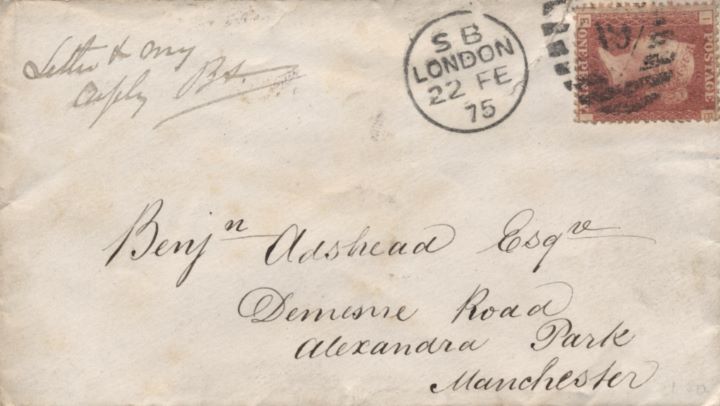 Letter & my
reply
S B
LONDON
22 FE
75
POSTAGE
ONE PENNY
Benjn Adshead Esqre
Demesne Road
Alexandra Park
Manchester